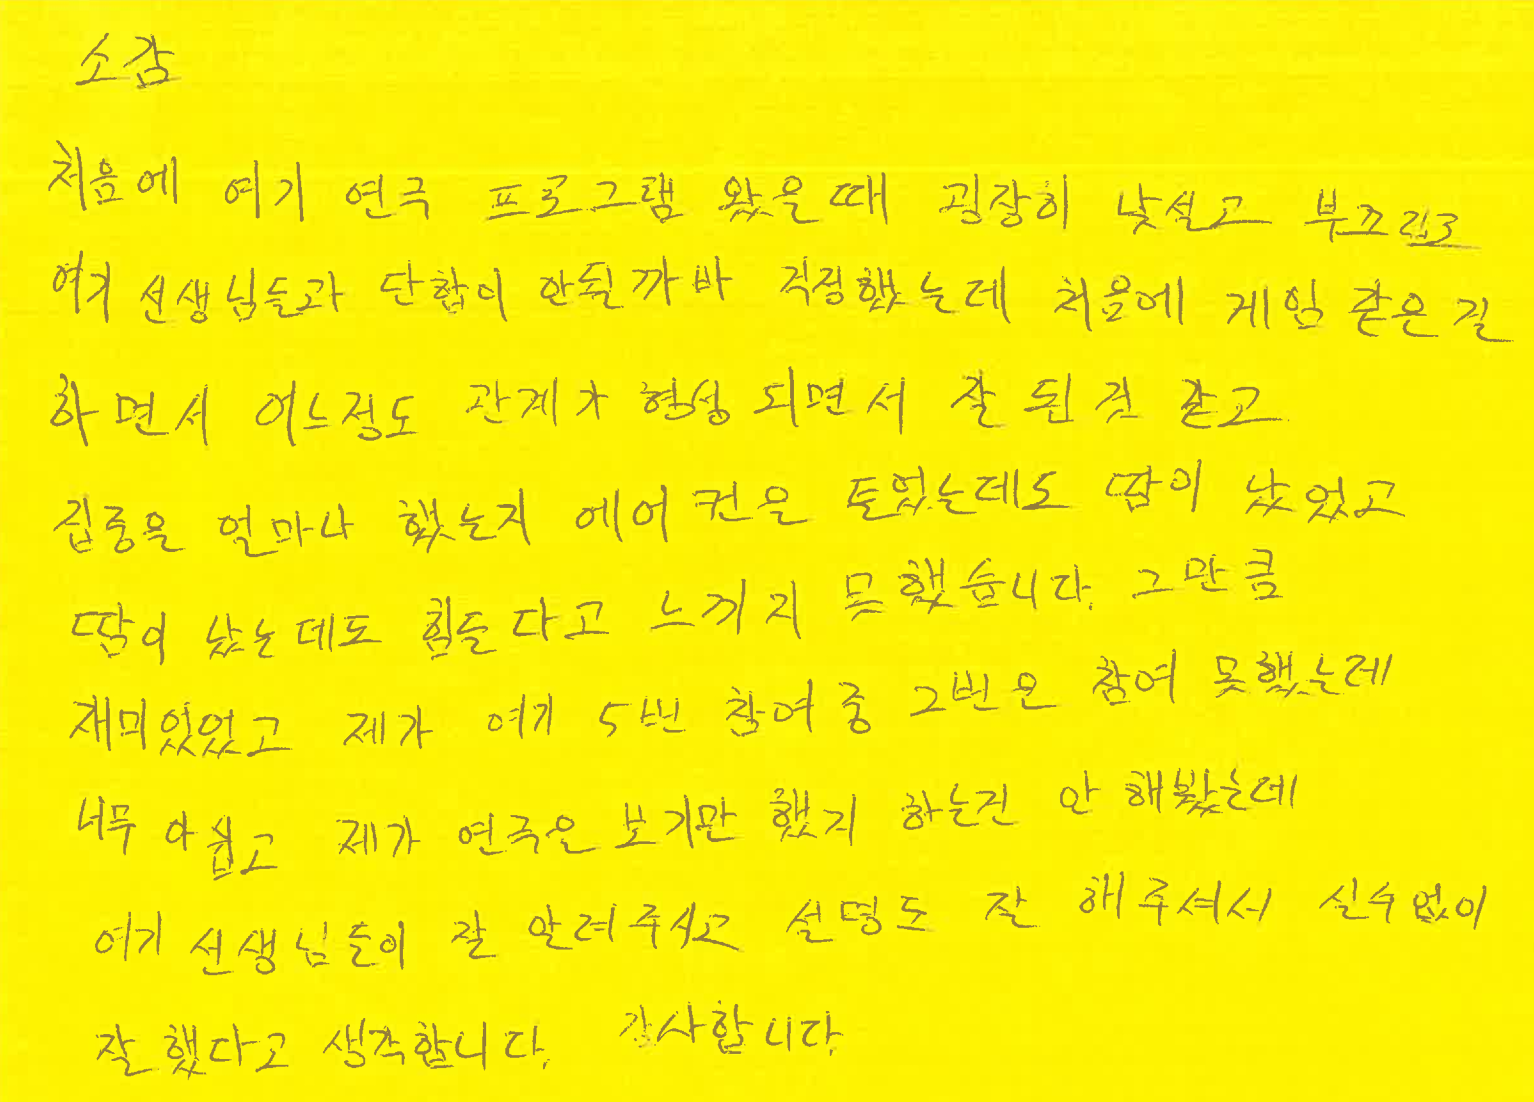 소감
처음에 여기 연극 프로그램 왔을때 굉장히 낯설고 부끄럽고
여기 선생님들과 단합이 안될까바 걱정했는데 처음에 게임 같은걸
하면서 어느정도 관계가 형성 되면서 잘 된것 같고
집중을 얼마나 했는지 에어컨을 틀었는데도 땀이 났었고
땀이 났는데도 힘들다고 느끼지 못했습니다. 그만큼
재미있었고 제가 여기 5번 참여중 2번은 참여 못했는데
너무 아쉽고 제가 연극은 보기만 했지 하는건 안 해봤는데
여기 선생님들이 잘 알려주시고 설명도 잘 해주셔서 실수없이
잘 했다고 생각합니다. 감사합니다.